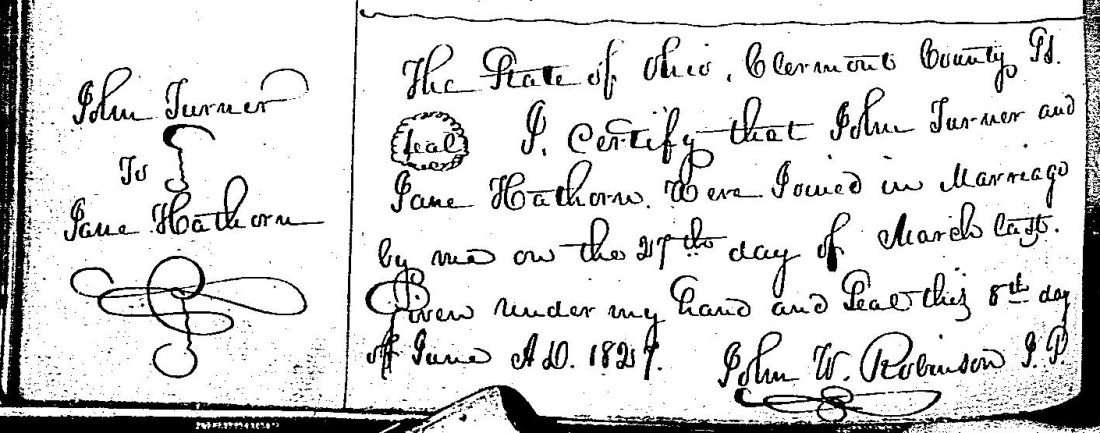 John Turner
To
Jane Hathorn
The State of Ohio, Clermont County Ss.
Seal
I. Certify that John Turner and
Jane Hathorn. Were Joined in Marriage
by me on the 27th day of March last.
Given under my hand and Seal this 8th day
of June A.D. 1827.
John W. Robinson J.P.